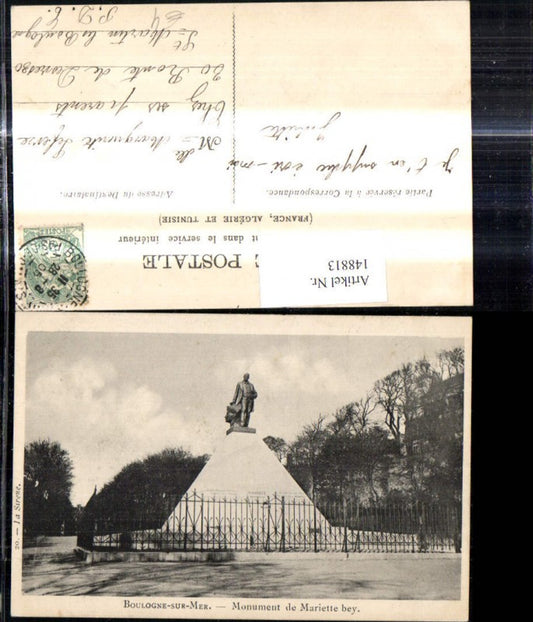 CARTE POSTALE
et dans le service intérieur
(FRANCE, ALGÉRIE ET TUNISIE)
Partie réservée à la Correspondance.
Adresse du Destinataire.
je t'en supplie écris-moi
Juliette
Mlle Marguerite Lefevre
Chez ses parents
30 Route de
St Martin les Boulogne
P. D. C.
Artikel Nr.
148813
20. — La Sirène.
BOULOGNE-SUR-MER. — Monument de Mariette bey.